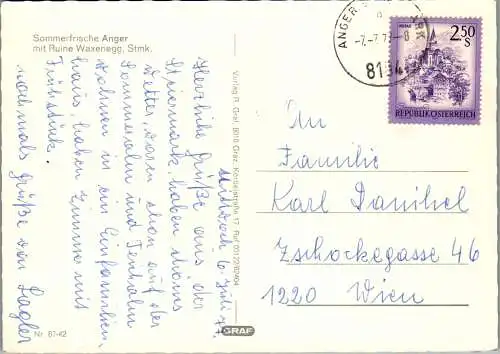 Sommerfrische Anger
mit Ruine Waxenegg, Stmk.
Mittwoch 6. Juli
Herzliche Grüße aus der
Steiermark, haben schönes
Wetter, waren schon auf der
Sommeralm und Teichalm
wohnen in ein Einfamilien-
haus, haben Zimmer mit
Frühstück.
nochmals Grüße von Lagler
Nr. 67-42
Verlag R. Graf, 8010 Graz,
GRAF
ANGER
-7.-7.77-8
8184
2.50
S
REPUBLIK ÖSTERREICH
An
Familie
Karl Danihel
Zschockegasse 46
1220 Wien